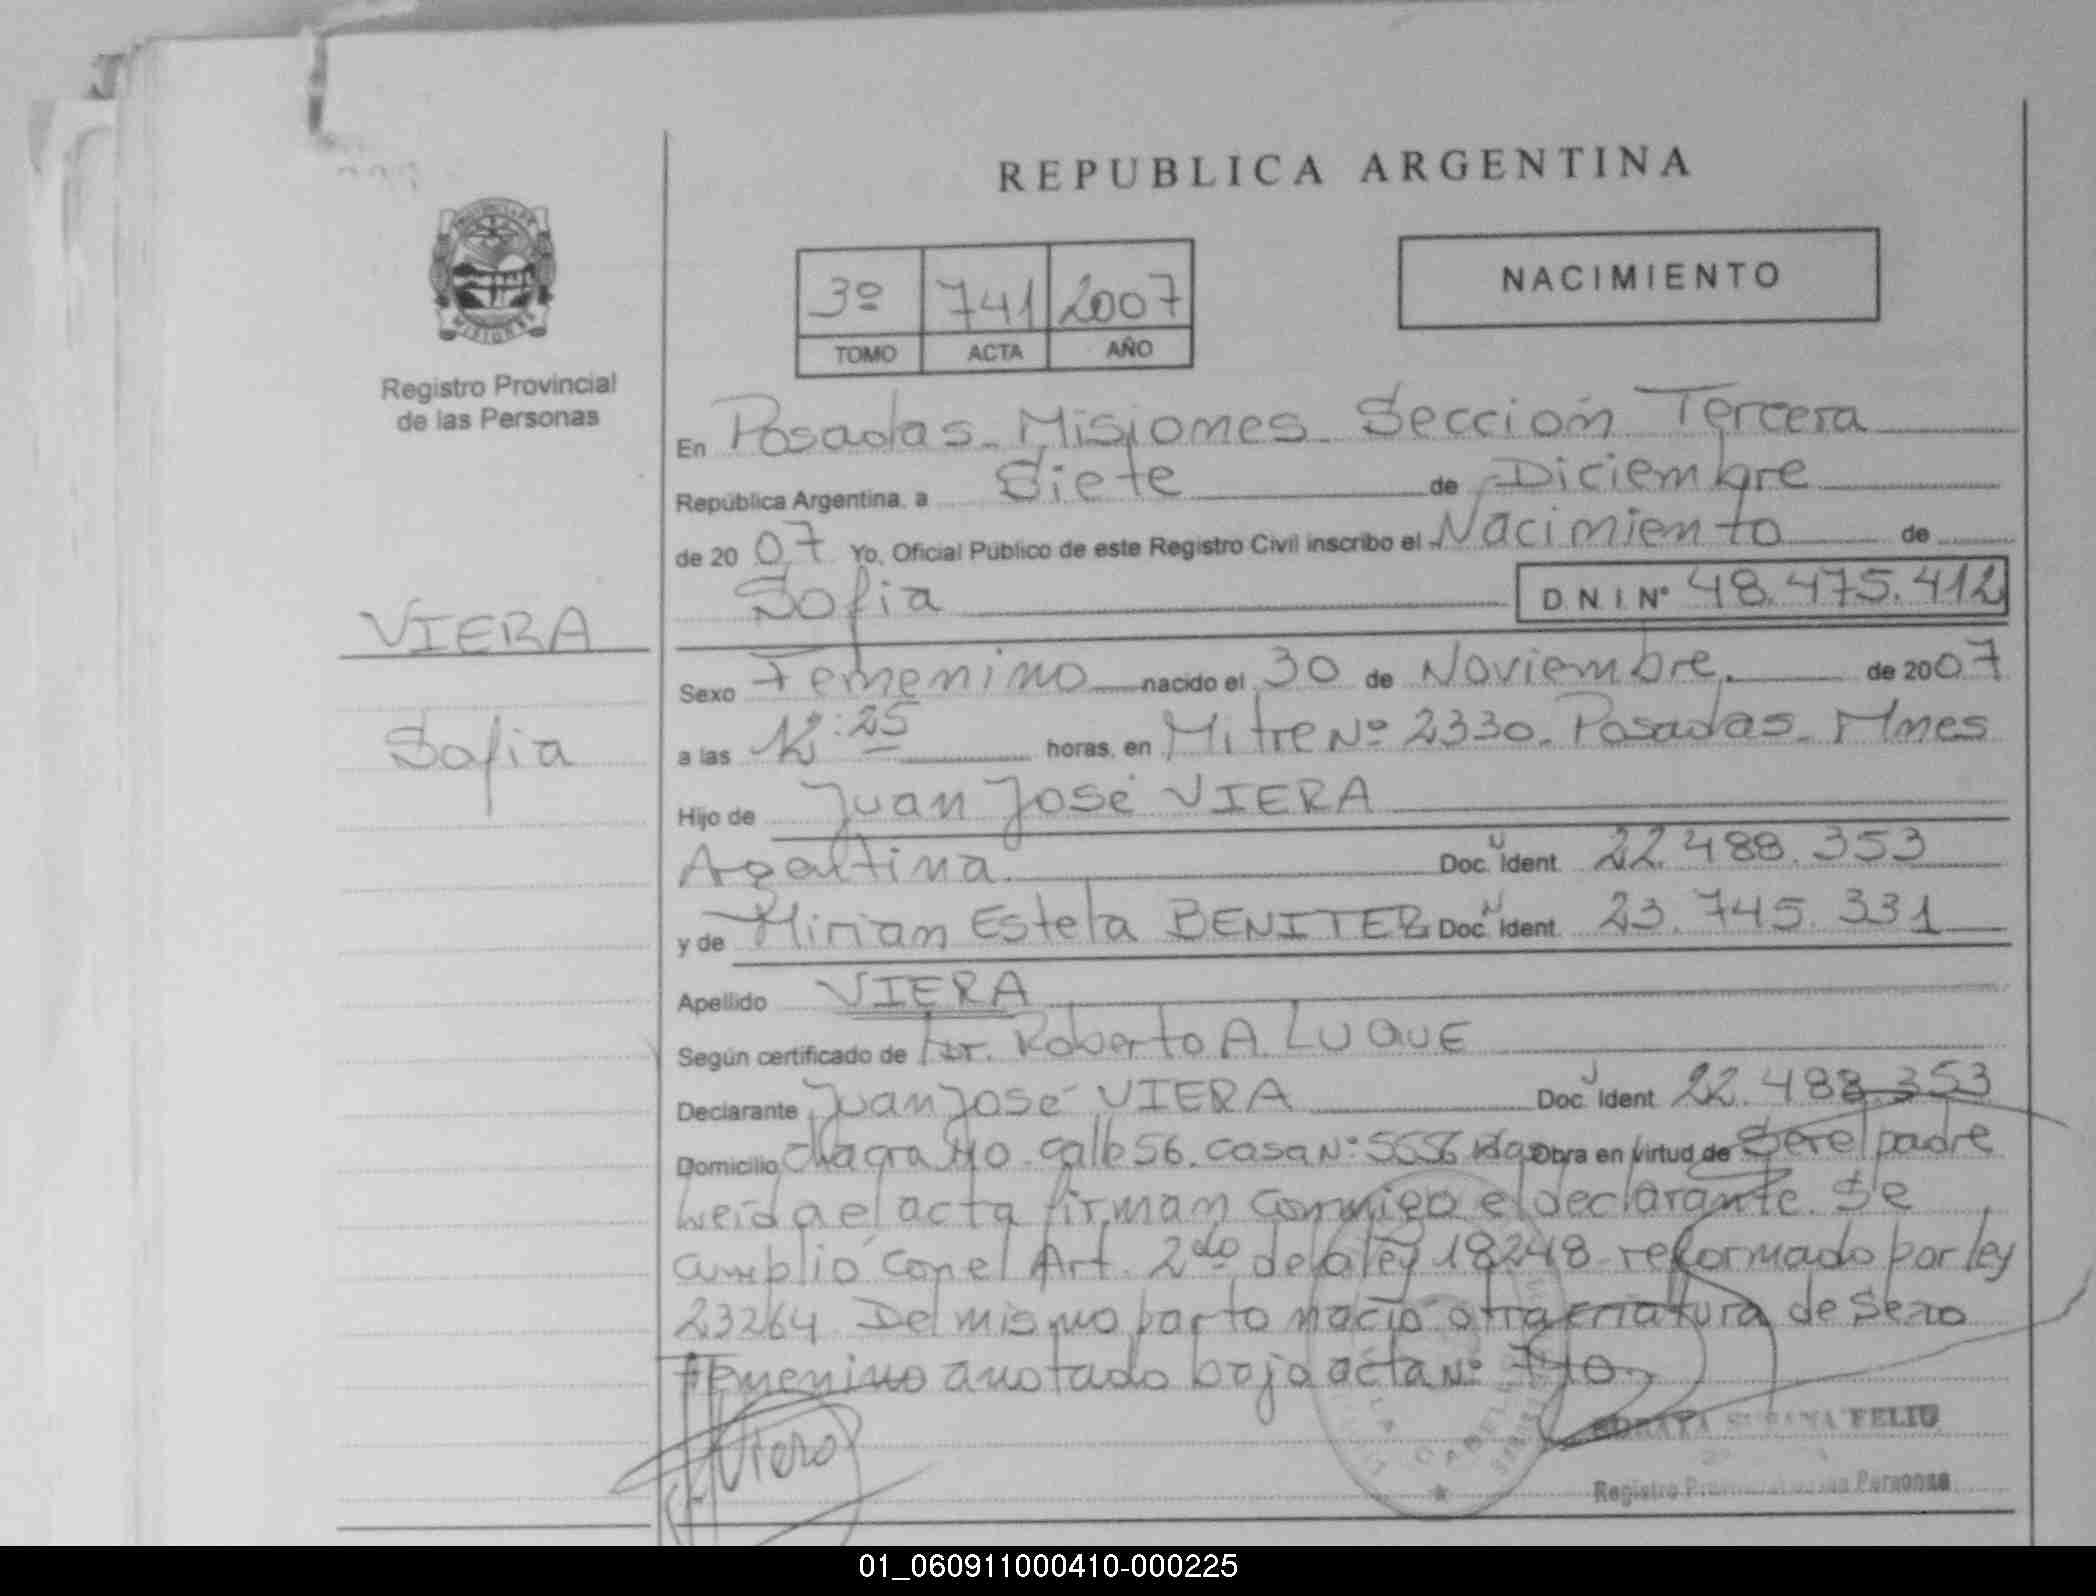 REPUBLICA ARGENTINA
3º 741 2007
TOMO ACTA AÑO
NACIMIENTO
MISIONES
Registro Provincial
de las Personas
En Posadas - Misiones - Sección Tercera
República Argentina, a Siete de Diciembre
de 2007 Yo, Oficial Público de este Registro Civil inscribo el Nacimiento de
Sofia D.N.I.Nº 48.475.412
VIERA
Sofia
Sexo Femenino nacido el 30 de Noviembre. de 2007
a las 12:25 horas, en Mitre Nº 2330. Posadas - Mnes
Hijo de Juan José VIERA
Doc. Ident. 22.488.353
y de Mirian Estela BENITEZ Doc. Ident. 23.745.331
Apellido VIERA
Según certificado de Dr. Roberto A. LUQUE
Declarante Juan José VIERA Doc. Ident. 22.488.353
Domicilio chacra 140. calle 56. casa Nº 5556 Obra en virtud de Ser el padre
Leída el acta firman conmigo el declarante. Se
amplió con el Art. 2do de la ley 18248 reformado por ley
23264. Del mismo parto nació otra criatura de sexo
femenino anotado bajo acta Nº 740
Viera
SUSANA FELIU
Registro Provincial de las Personas
01_060911000410-000225